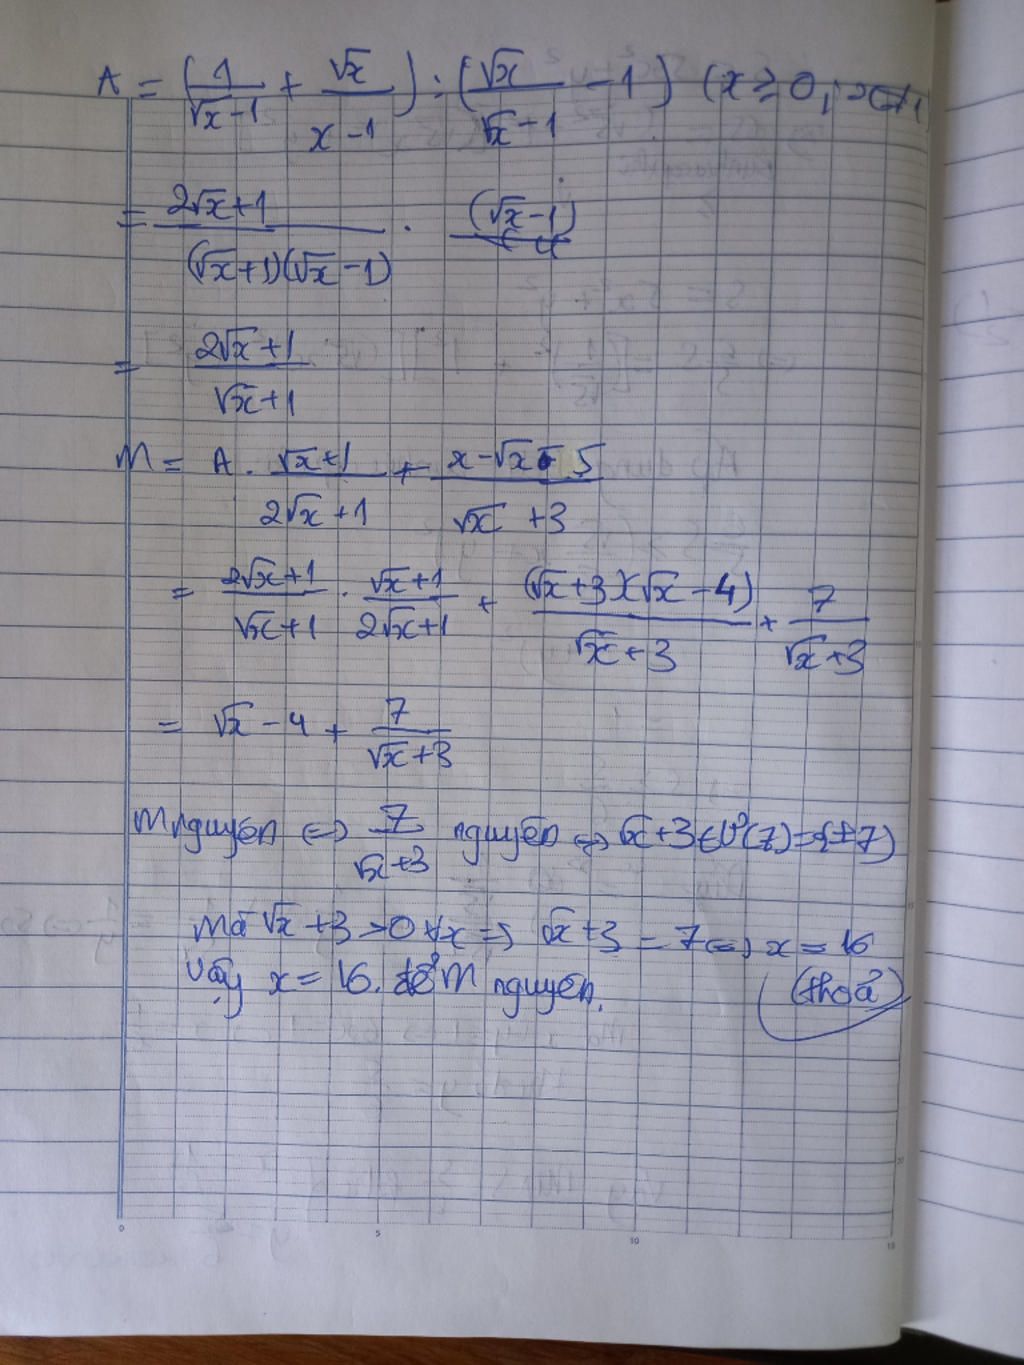 A = (1/(√x-1) + √x/(x-1)) : (√x/(√x-1) - 1) (x ≥ 0, x≠1)
= (2√x+1)/((√x+1)(√x-1)) . (√x-1)
= (2√x+1)/(√x+1)
M = A . (√x+1)/(2√x+1) + (x-√x-5)/(√x+3)
= (2√x+1)/(√x+1) . (√x+1)/(2√x+1) + ((√x+3)(√x-4))/(√x+3) + 7/(√x+3)
= √x - 4 + 7/(√x+3)
M nguyên ⇔ 7/(√x+3) nguyên ⇔ √x+3 ∈ Ư(7) = {±7)
Mà √x+3 >0 ∀x ⇒ √x+3 = 7 ⇔ x = 16
(thoả)
Vậy x = 16. để M nguyên.
0 5 10 15
20